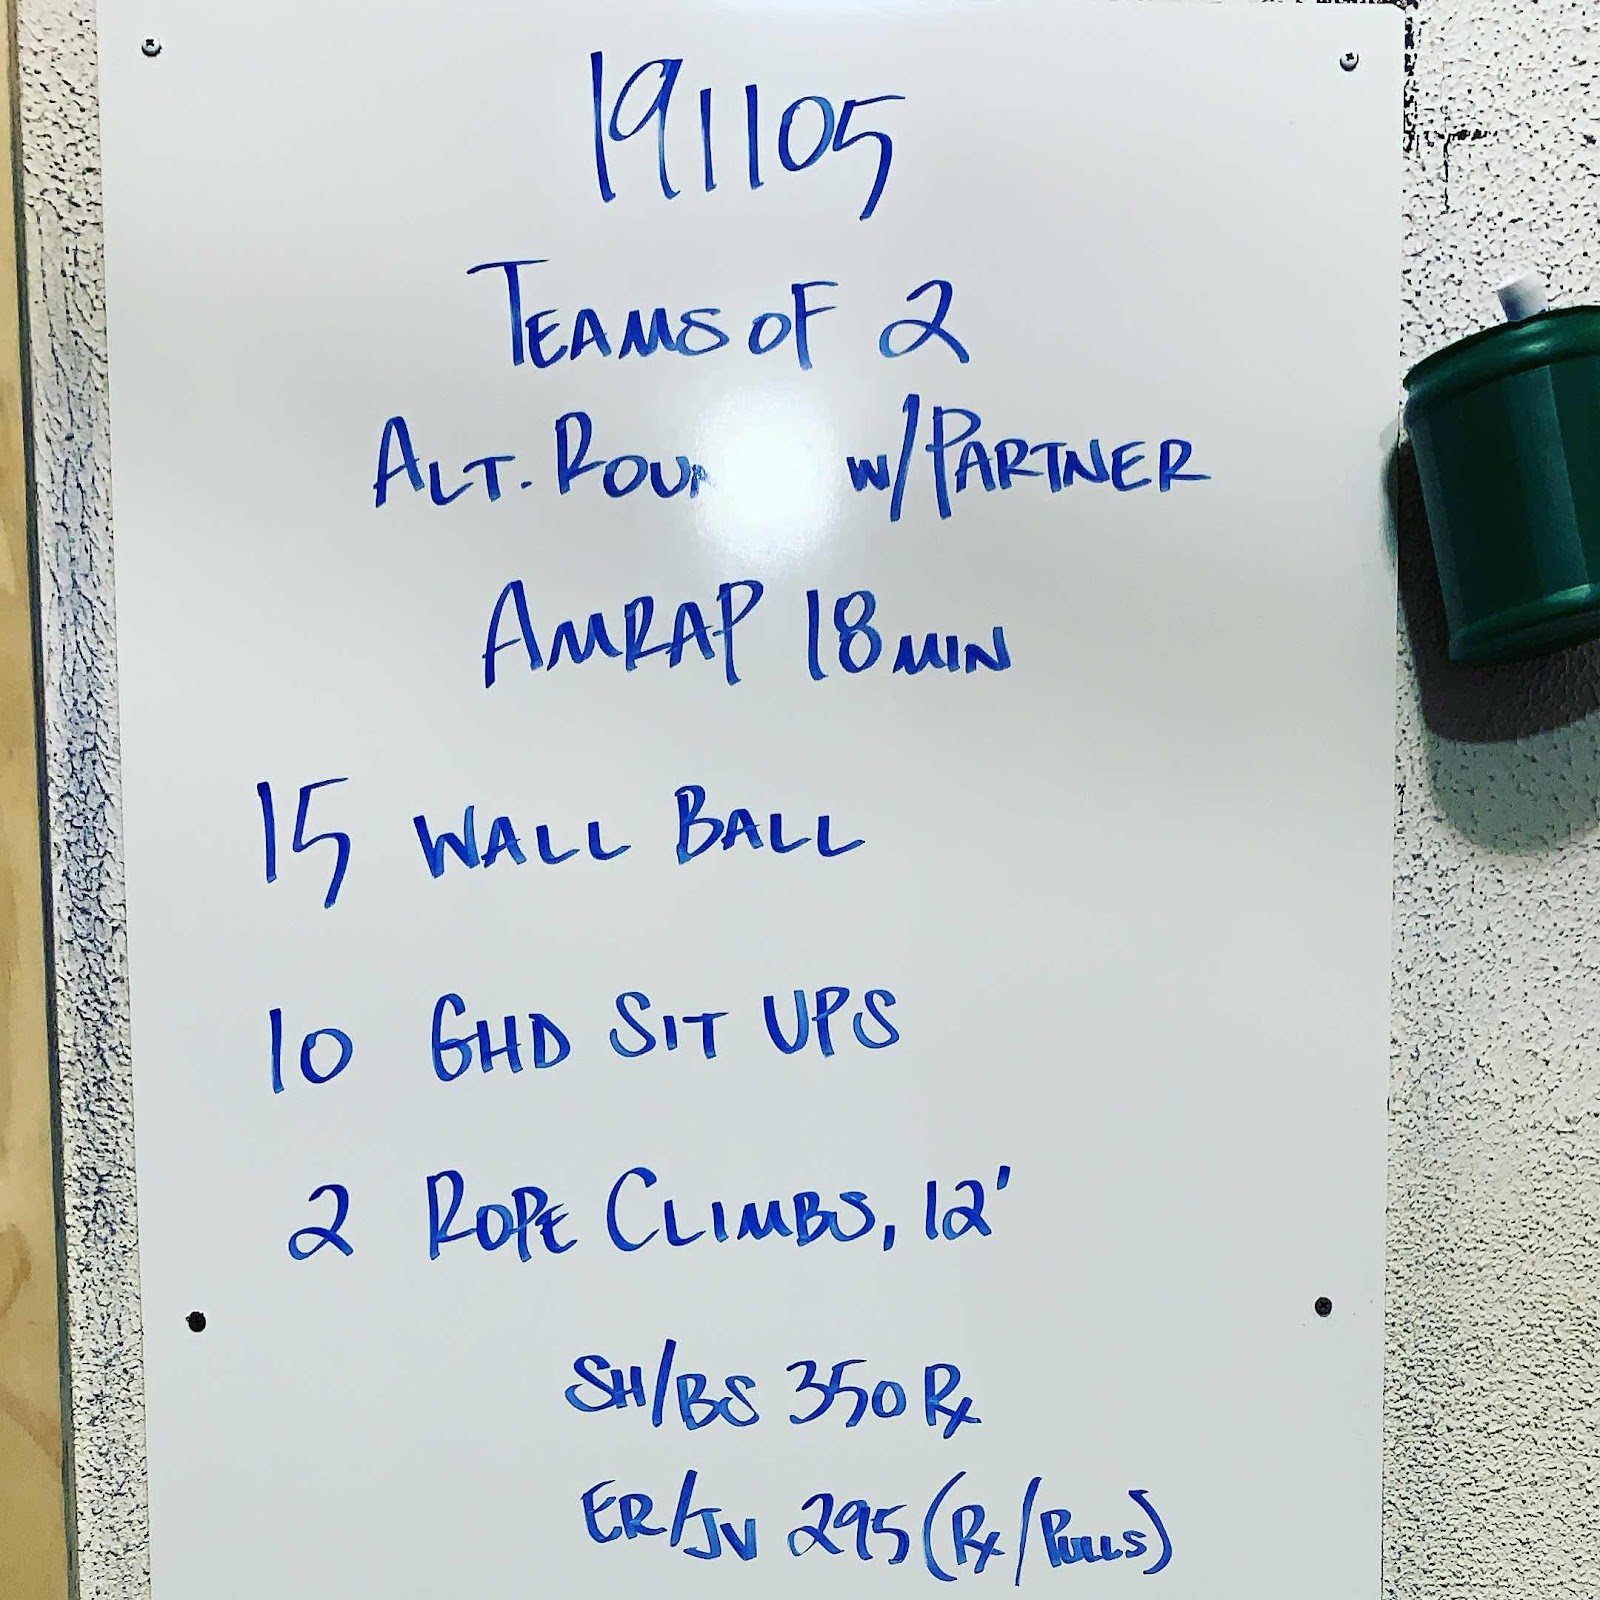 191105
TEAMS OF 2
ALT. ROUN W/PARTNER
AMRAP 18 MIN
15 WALL BALL
10 GHD SIT UPS
2 ROPE CLIMBS, 12'
SH/BS 350 Rx
ER/JV 295 (Rx/PULLS)